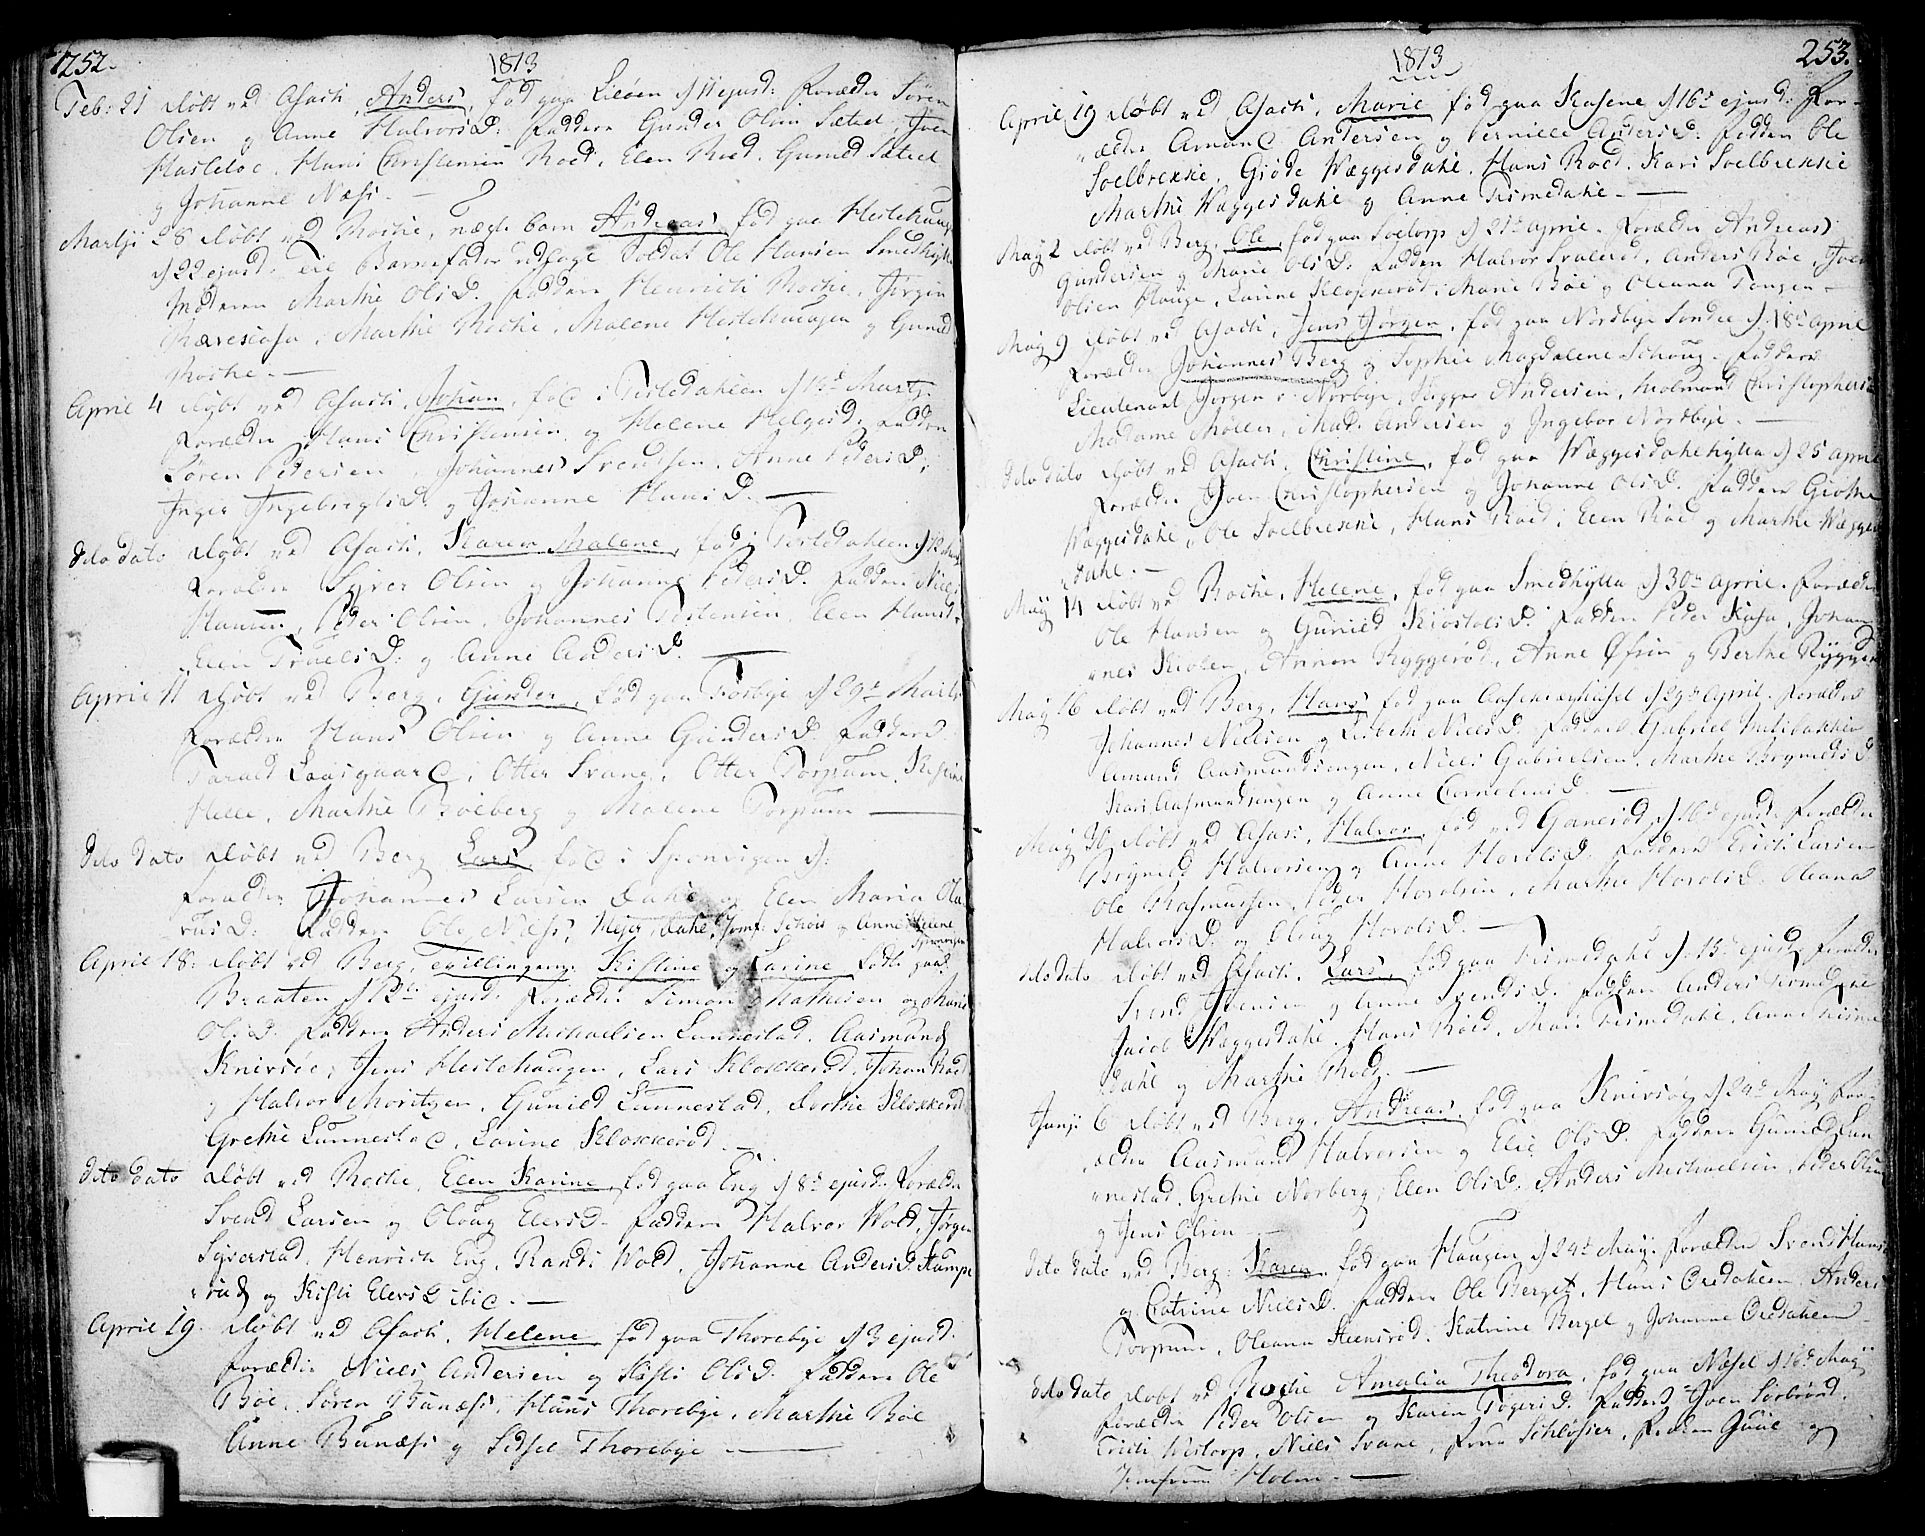 252.
1813
Feb: 21 Døbt ved Asach, Anders, fød paa Lieøen d 11 ejusd: Forældre Søren
Olsen og Anne Halvors D: Faddere Gunder Olsen Sætred, Joen
Hasteløe, Hans Christensen Roed, Elen Roed. Gunild Sætred
og Johanne Næss. —
Martji 28 Døbt ved Rocke, uægte barn Andreas, fød paa Hestehaug
d 22 ejusd. til Barnefader udlagt Soldat Ole Hansen Smedhytte
Moderen Marthe Ols D. Faddere Henrich Rocke, Jørgen
Rævescasa, Marthe Rocke, Malene Hestehaugen og Gunild
Rocke. —
April 4 Døbt ved Asach, Johan, fød i Tistedahlen d 12 Martji
Forældre Hans Christensen og Helene Helges D: Faddere
Søren Pedersen, Johannes Svendsen, Anne Peders D:
Inger Ingebregts D: og Johanne Hans D. —
dito dato Døbt ved Asach, Karen Malene, fød i Tistedahlen d 12
Forældre Syver Olsen og Johanne Peders D. Faddere Niels
Hansen, Peder Olsen, Johannes Torstensen, Elen Hans D.
Elen Truels D: og Anne Anders D. —
April 11 Døbt ved Berg, Gunder, fød paa Fosbye d 29de Martji
Forældre Hans Olsen og Anne Gunders D. Faddere
Tarald Laasgaard, Otter Svane, Otter Torpum, Kistine
Helle, Marthe Böeberg og Malene Torpum —
dito dato Døbt ved Berg Lars, fød i Sponvigen d:
Forældre Johannes Larsen Dahl og Elen Maria Ola
rus D: Faddere Ole Næss, Mejer, Dahl, Jomf: Schou og Anne Helene
Sponvigen
April 18: Døbt ved Berg, Tvillingerne Kistine og Larine fødte paa
Braaten d 12te ejusd: Forældre Simon Mathisen og Marie
Ols D. Faddere Anders Michaelsen Lunnestad, Aasmund
Knivsöe, Jens Hestehaugen, Lars Klokkerød, Johan Roed
og Halvor Moritzen, Gunild Lunnestad, Dorthe Klokkerød
Grethe Lunnestad, Larine Klokkerød.
dito dato Døbt ved Rocke, Elen Karine, fød paa Eng d 8de ejusd. Forældre
Svend Larsen og Oloug Elers D. Faddere Halvor Wold, Jørgen
Syverstad, Henrich Eng, Randi Wold, Johanne Anders D Kamp
rud og Kisti Elers D ibid. —
April 19. Døbt ved Asach, Helene fød paa Thorebye d 3 ejusd.
Forældre Niels Andersen og Kisti Ols D. Faddere Ole
Böe, Søren Bunæss, Hans Thorebye, Marthe Böe
Anne Bunæss og Sidsel Thorebye —
1813
253.
April 19 Døbt ved Asach, Marie fød paa Kasene d 16de ejusd: For-
ældre Amund Andersen og Pernille Anders D: Faddere Ole
Soelbrekke, Giöde Wæggesdahl, Hans Roed. Kari Soelbrekke
Marthe Wæggesdahl og Anne Tismedahl. —
Maij 2 Døbt ved Berg, Ole, fød paa Soetorp d 21de April. Forældre Andreas
Gundersen og Marie Ols D: Faddere Halvor Svalerød, Anders Böe, Joen
Olsen Hauge, Larine Klopnerød, Marie Böe og Oleana Tangen —
Maij 9 Døbt ved Asach, Jens Jörgen, fød paa Nordbye Søndre d. 18de April
Forældre Johannes Berg og Sophie Magdalene Schoug. Faddere
Lieutenant Jörgen Norbye, Andersen, Wolmand Christophersen
Madame Møller, Mad: Andersen og Ingebor Nordbye. —
dito dato Døbt ved Asach, Christine, fød paa Wæggesdahlehytta d 25 April
Forældre Joen Christophersen og Johanne Ols D. Faddere Giöthe
Wæggesdahl, Ole Soelbrekke, Hans Roed, Elen Roed og Marthe Wægges
dahl. —
Maij 14 Døbt ved Rocke, Helene, fød paa Smedhytta d 30te April. Forældre
Ole Hansen og Gunild Kiöstels D. Faddere Peder Kasa, Johan
nes Kiölen, Annon Ryggerød, Anne Øfsen og Berthe Rygger
Maij 16 Døbt ved Berg, Hans fød paa d 29de April. Forældre
Johannes Nielsen og Lisbeth Niels D. Faddere Gabriel
Amund Aasmundsengen, Niels Gabrielsen, Marthe Brynilds D
Kari Aasmundsengen og Anne Cornelius D. —
Maij 30 Døbt ved Asach, Halvor, fød ved Ganerød d 16de ejusd. Forældre
Brynild Halvorsen og Anne Horels D. Faddere Erich Larsen
Ole Rasmussen, Peder Horelsen, Marthe Horels D. Oleana
Halvors D. og Oloug Horels D. —
dito dato Døbt ved Asach, Lars, fød paa Tismedahl d. 15de ejusd. Forældre
Svend Svensen og Anne Svends D. Faddere Anders Tismedahl
Jacob Wæggesdahl. Hans Roed, Mari Tismedahl, Anne Tisme
dahl og Marthe Roed. —
Junji 6 Døbt ved Berg, Andreas, fød paa Knivsöe d 24de Maij. For-
ældre Aasmund Halversen og Elie Ols D. Faddere Gunild Lun
nestad, Grethe Norberg, Elen Ols D. Anders Michaelsen, Peder Olsen
og Jens Olsen —
dito dato ved Berg: Karen, fød paa Haugen d 24de Maij. Forældre Svend Hans
og Catrine Niels D. Faddere Ole Berget, Hans Oredahlen, Anders
Torpum, Oleanna Steensrød. Katrine Berget og Johanne Oredahlen
dito dato Døbt ved Rocke Amalia Theodora, fød paa Næset d 16de Maij
Forældre Peder Olsen og Karen Togers D. Faddere Joen Sørbrond.
Erich Westorp, Niels Svane, Frue Schlosser, Frøken Juul og
Jomfrue Holm. —